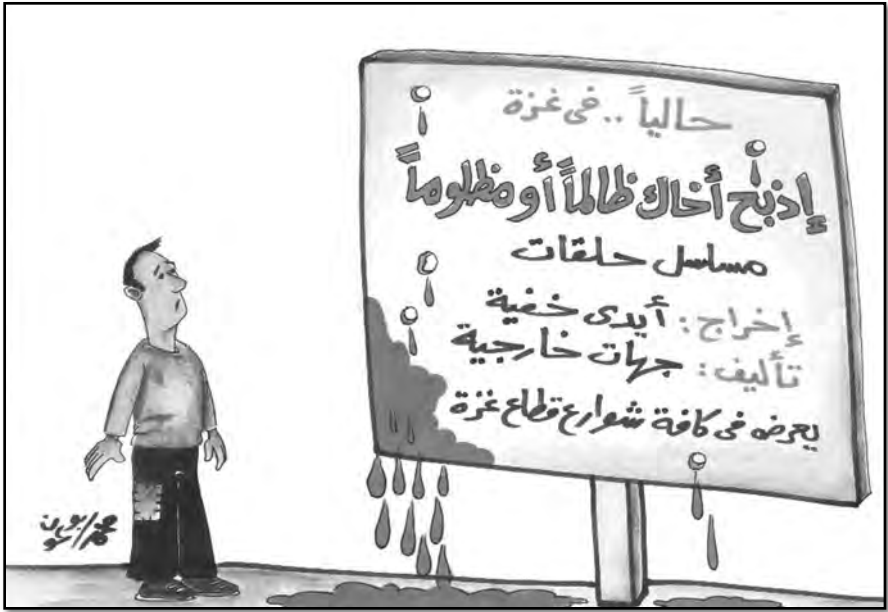 حالياً .. فى غزة
إذبح أخاك ظالماً أو مظلوماً
مسلسل حلقات
إخراج : أيدى خفية
تأليف : جهات خارجية
يعرض فى كافة شوارع قطاع غزة